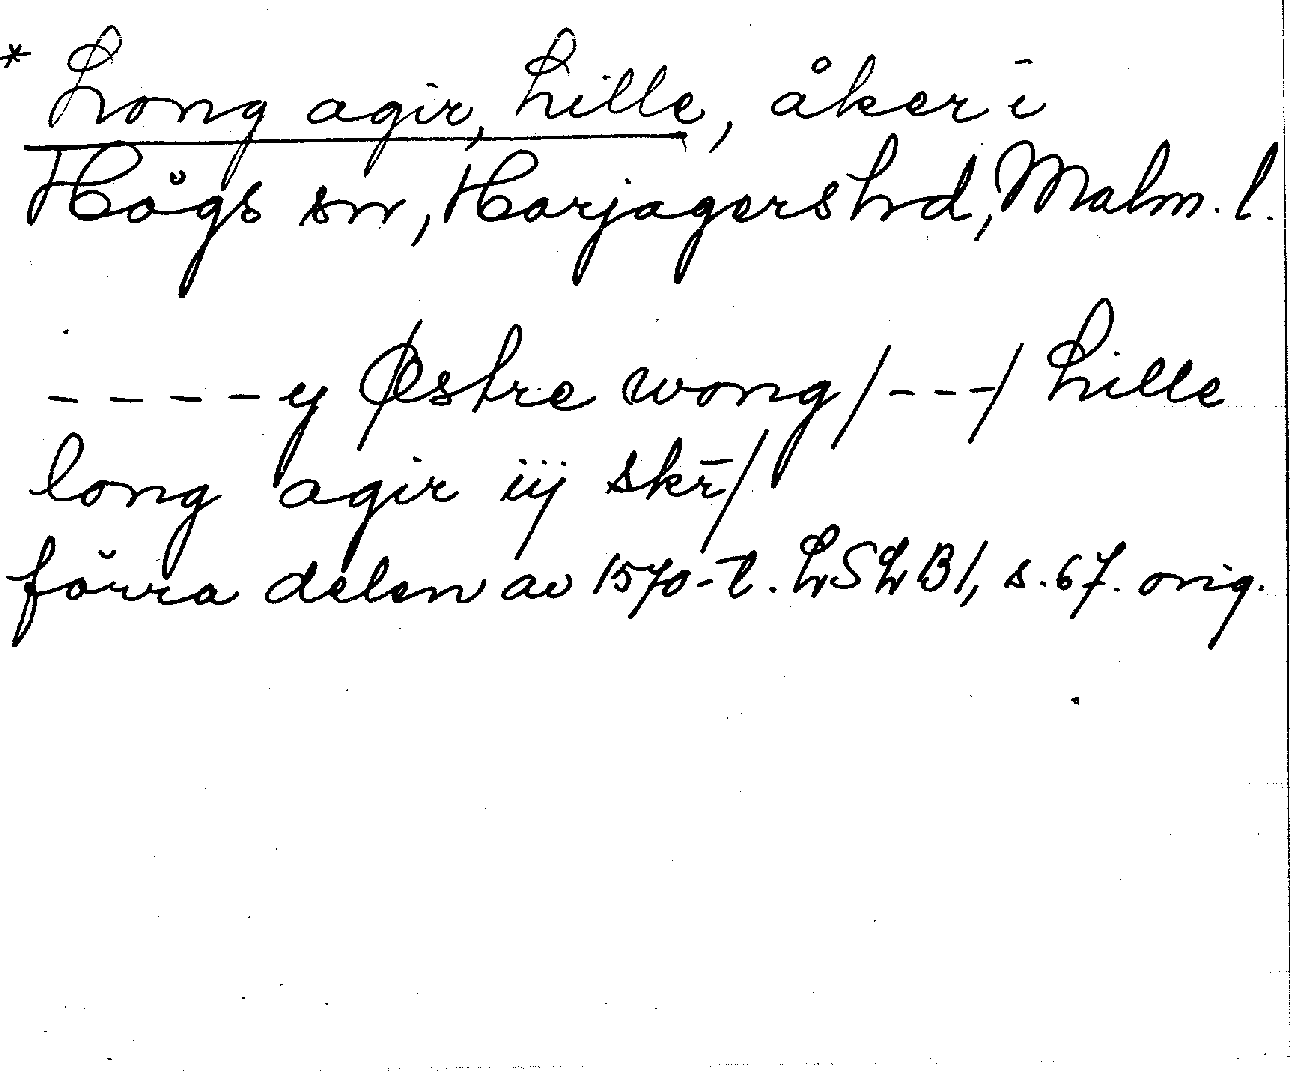 * Long agir, Lille, åker i
Högs sn, Harjagers hd, Malm. l.
- - - - y Østre wong/---/ Lille
long agir iij skr̄/
förra delen av 1570-t. LSLB1, s. 67. orig.